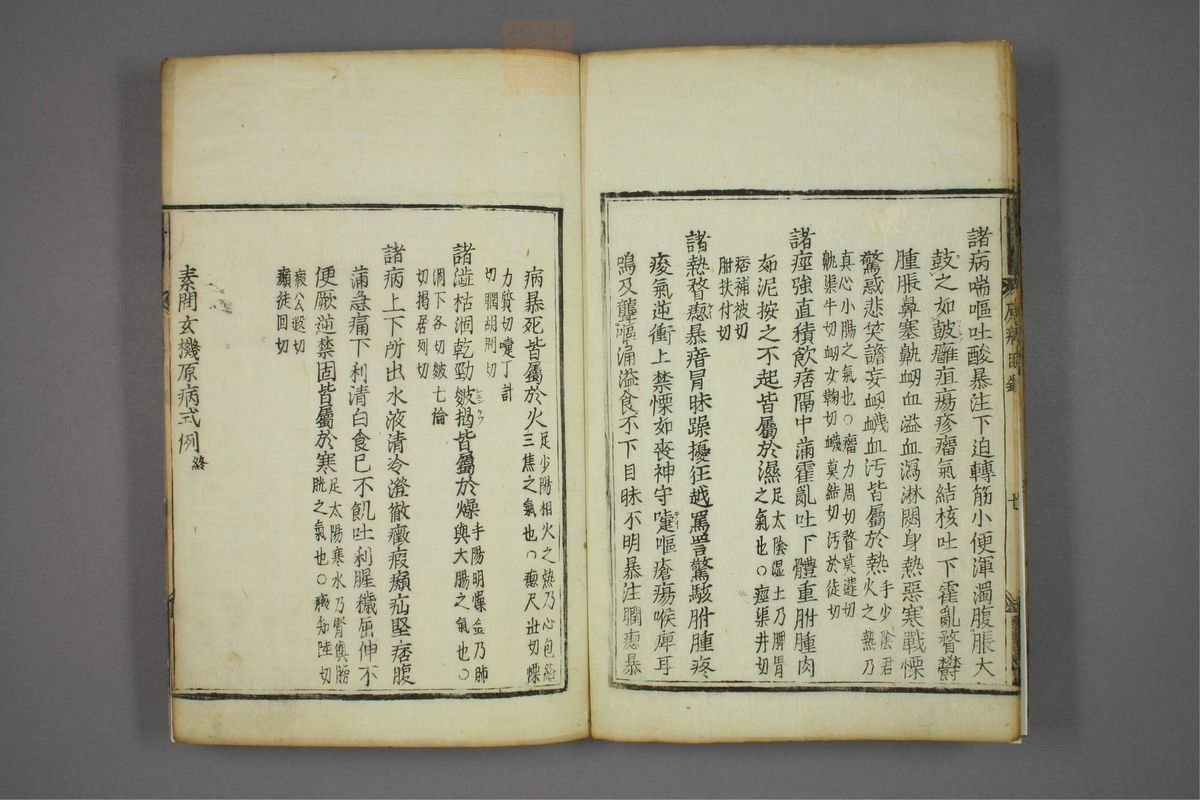 諸病喘嘔吐酸暴注下迫轉筋小便渾濁腹脹大
鼓之如鼓癰疽瘍疹瘤氣結核吐下霍亂瞀鬱
腫脹鼻塞鼽衄血溢血瀉淋閟身熱惡寒戰慄
驚惑悲笑譫妄衄衊血汚皆屬於熱手少陰君火之熱乃
真心小腸之氣也○瘤力周切瞀莫遘切
鼽渠牛切衄女鞠切衊莫結切汚於徒切
諸痙強直積飲痞隔中滿霍亂吐下體重胕腫肉
如泥按之不起皆屬於濕足太陰濕土乃脾胃之氣也○痙渠井切
痞補被切
胕扶付切
諸熱瞀瘛暴瘖冒昧躁擾狂越罵詈驚駭胕腫疼
痠氣逆衝上禁慄如喪神守嚏嘔瘡瘍喉痺耳
鳴及聾嘔涌溢食不下目昧不明暴注瞤瘛暴
病暴死皆屬於火足少陽相火之熱乃心包絡三焦之氣也○瘛尺出切慄
力質切嚏丁計
切瞤胡閏切
諸澁枯涸乾勁皴揭皆屬於燥手陽明燥金乃肺與大腸之氣也○
涸下各切皴七倫
切揭居列切
諸病上下所出水液清冷澄徹癥瘕㿗疝堅痞腹
滿急痛下利清白食已不飢吐利腥穢屈伸不
便厥逆禁固皆屬於寒足太陽寒水乃腎與膀胱之氣也○癥知陵切
瘕公遐切
㿗徒回切
素問玄機原病式例終
七